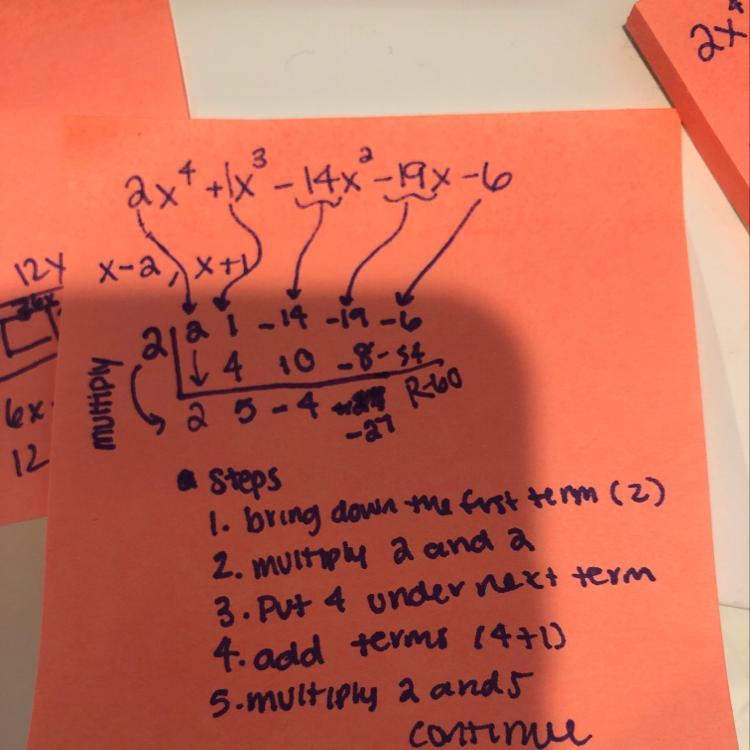 2x⁴
2x⁴ + 1x³ - 14x² - 19x - 6
12x
x-2, x+1
2 | 2 1 -14 -19 -6
multiply
4 10 -8 -54
2 5 -4 -27 R-60
6x
12
Steps
1. bring down the first term (2)
2. multiply 2 and 2
3. Put 4 under next term
4. add terms (4+1)
5. multiply 2 and 5
continue